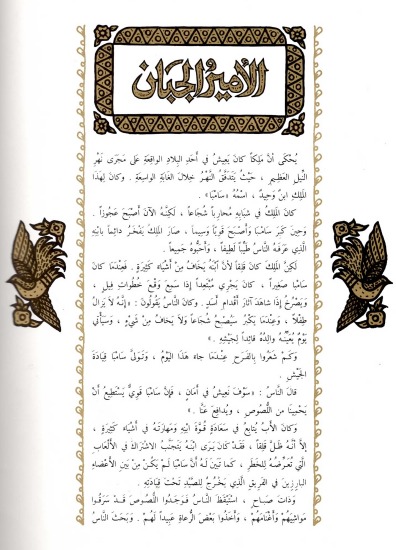 الأمير الجبان
يُحْكَى أَنَّ مَلِكاً كانَ يَعِيشُ في أَحَدِ البِلادِ الواقِعَةِ عَلى مَجْرَى نَهْرِ
النِّيلِ العَظِيمِ ، حَيْثُ يَتَدَفَّقُ النَّهْرُ خِلالَ الغابَةِ الواسِعَةِ . وكانَ لِهٰذا
المَلِكِ ابْنٌ وَحِيدٌ ، اسْمُهُ «سامْبَا» .
كانَ المَلِكُ في شَبابِهِ مُحارِباً شُجَاعاً ، لٰكِنَّهُ الآنَ أَصْبَحَ عَجُوزاً .
وحِينَ كَبُرَ سامْبَا وأَصْبَحَ قَوِيّاً وَسِيماً ، صارَ المَلِكُ يَفْخَرُ دائِماً بِابْنِهِ
الَّذِي عَرَفَهُ النَّاسُ طَيِّباً لَطِيفاً ، وأَحَبُّوهُ جَمِيعاً .
لٰكِنَّ المَلِكَ كانَ قَلِقاً لأَنَّ ابْنَهُ يَخَافُ مِنْ أَشْياءَ كَثِيرَةٍ . فَعِنْدَما كانَ
سامْبَا صَغِيراً ، كانَ يَجْرِي مُبْتَعِداً إِذا سَمِعَ وَقْعَ خُطُواتِ فِيلٍ ،
ويَصْرُخُ إِذا شاهَدَ آثارَ أَقْدامِ أَسَدٍ . وكانَ النَّاسُ يَقُولُونَ : «إِنَّهُ لا يَزالُ
طِفْلاً ، وعِنْدَما يَكْبُرُ سَيُصْبِحُ شُجَاعاً ولا يَخافُ مِنْ شَيْءٍ ، وسَيَأْتِي
يَوْمٌ يُعَيِّنُهُ والِدُهُ قائِداً لِجَيْشِهِ .»
وكَمْ شَعَرُوا بِالفَرَحِ عِنْدَما جاءَ هٰذا اليَوْمُ ، وتَوَلَّى سامْبَا قِيادَةَ
الجَيْشِ .
قالَ النَّاسُ : «سَوْفَ نَعِيشُ في أَمَانٍ ، فَإِنَّ سامْبَا قَوِيٌّ يَسْتَطِيعُ أَنْ
يَحْمِيَنا مِن اللُّصُوصِ ، ويُدافِعَ عَنَّا .»
وكانَ الأَبُ يُتابِعُ في سَعادَةٍ قُوَّةَ ابْنِهِ ومَهارَتَهُ في أَشْياءَ كَثِيرَةٍ ،
إِلّا أَنَّهُ ظَلَّ قَلِقاً ، فَقَدْ كانَ يَرَى ابْنَهُ يَتَجَنَّبُ الاشْتِراكَ في الأَلْعابِ
الَّتِي تُعَرِّضُهُ لِلْخَطَرِ ، كَما تَبَيَّنَ لَهُ أَنَّ سامْبَا لَمْ يَكُنْ مِنْ بَيْنِ الأَعْضاءِ
البارِزِينَ في الفَرِيقِ الَّذِي يَخْرُجُ لِلصَّيْدِ تَحْتَ قِيادَتِهِ .
وَذاتَ صَباحٍ ، اسْتَيْقَظَ النَّاسُ فَوَجَدُوا اللُّصُوصَ قَدْ سَرَقُوا
مَواشِيَهُمْ وأَغْنامَهُمْ ، وأَخَذُوا بَعْضَ الرُّعاةِ عَبِيداً لَهُمْ . وبَحَثَ النَّاسُ